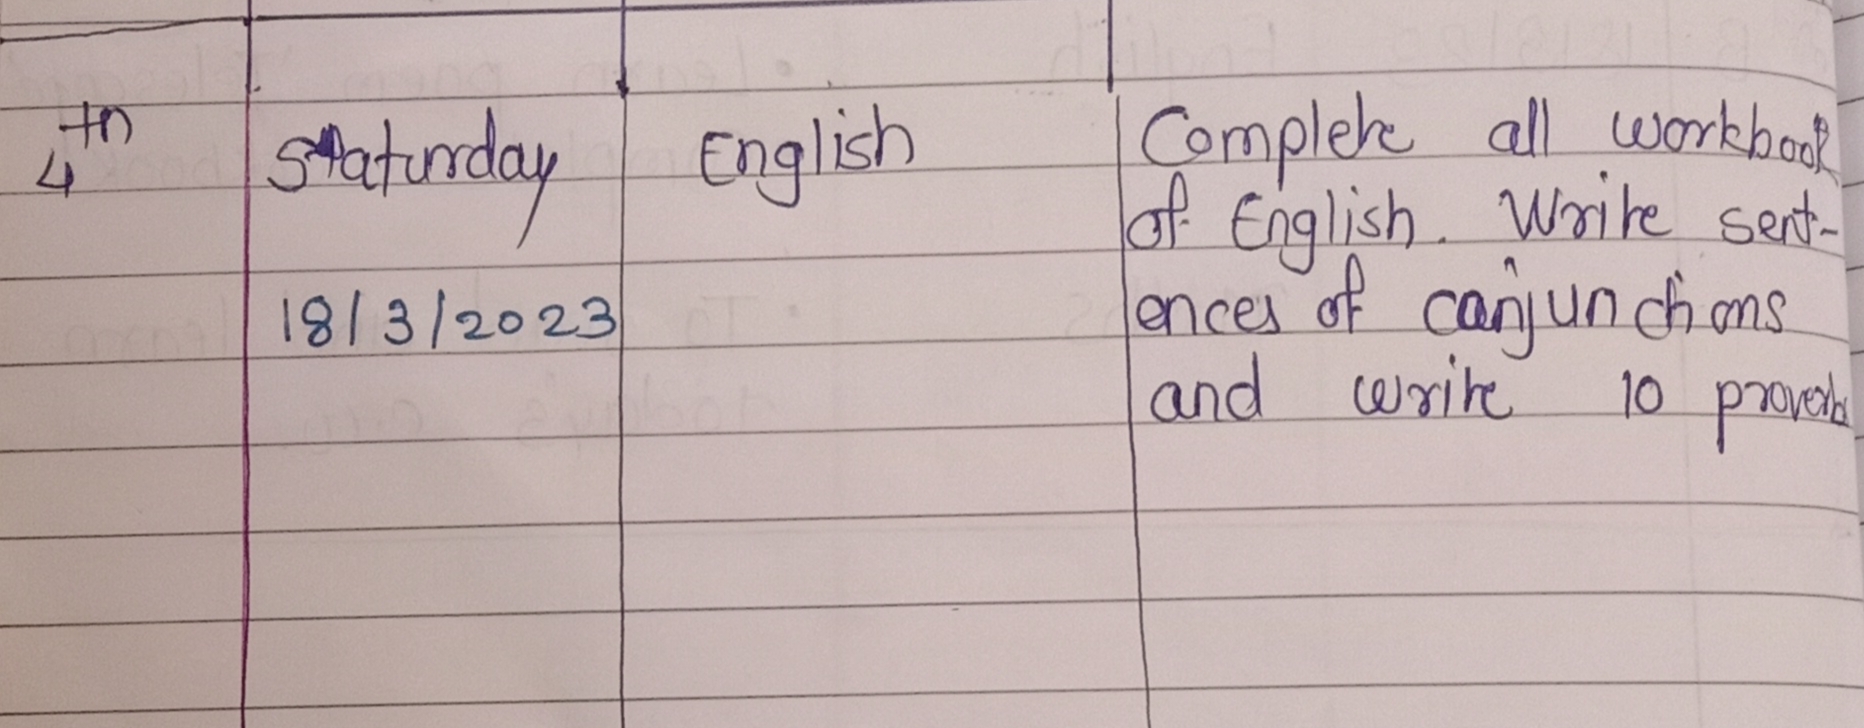 4th Staturday English Complete all workbook
of English. Write sent-
18/3/2023 ences of canjunctions
and write 10 proverb